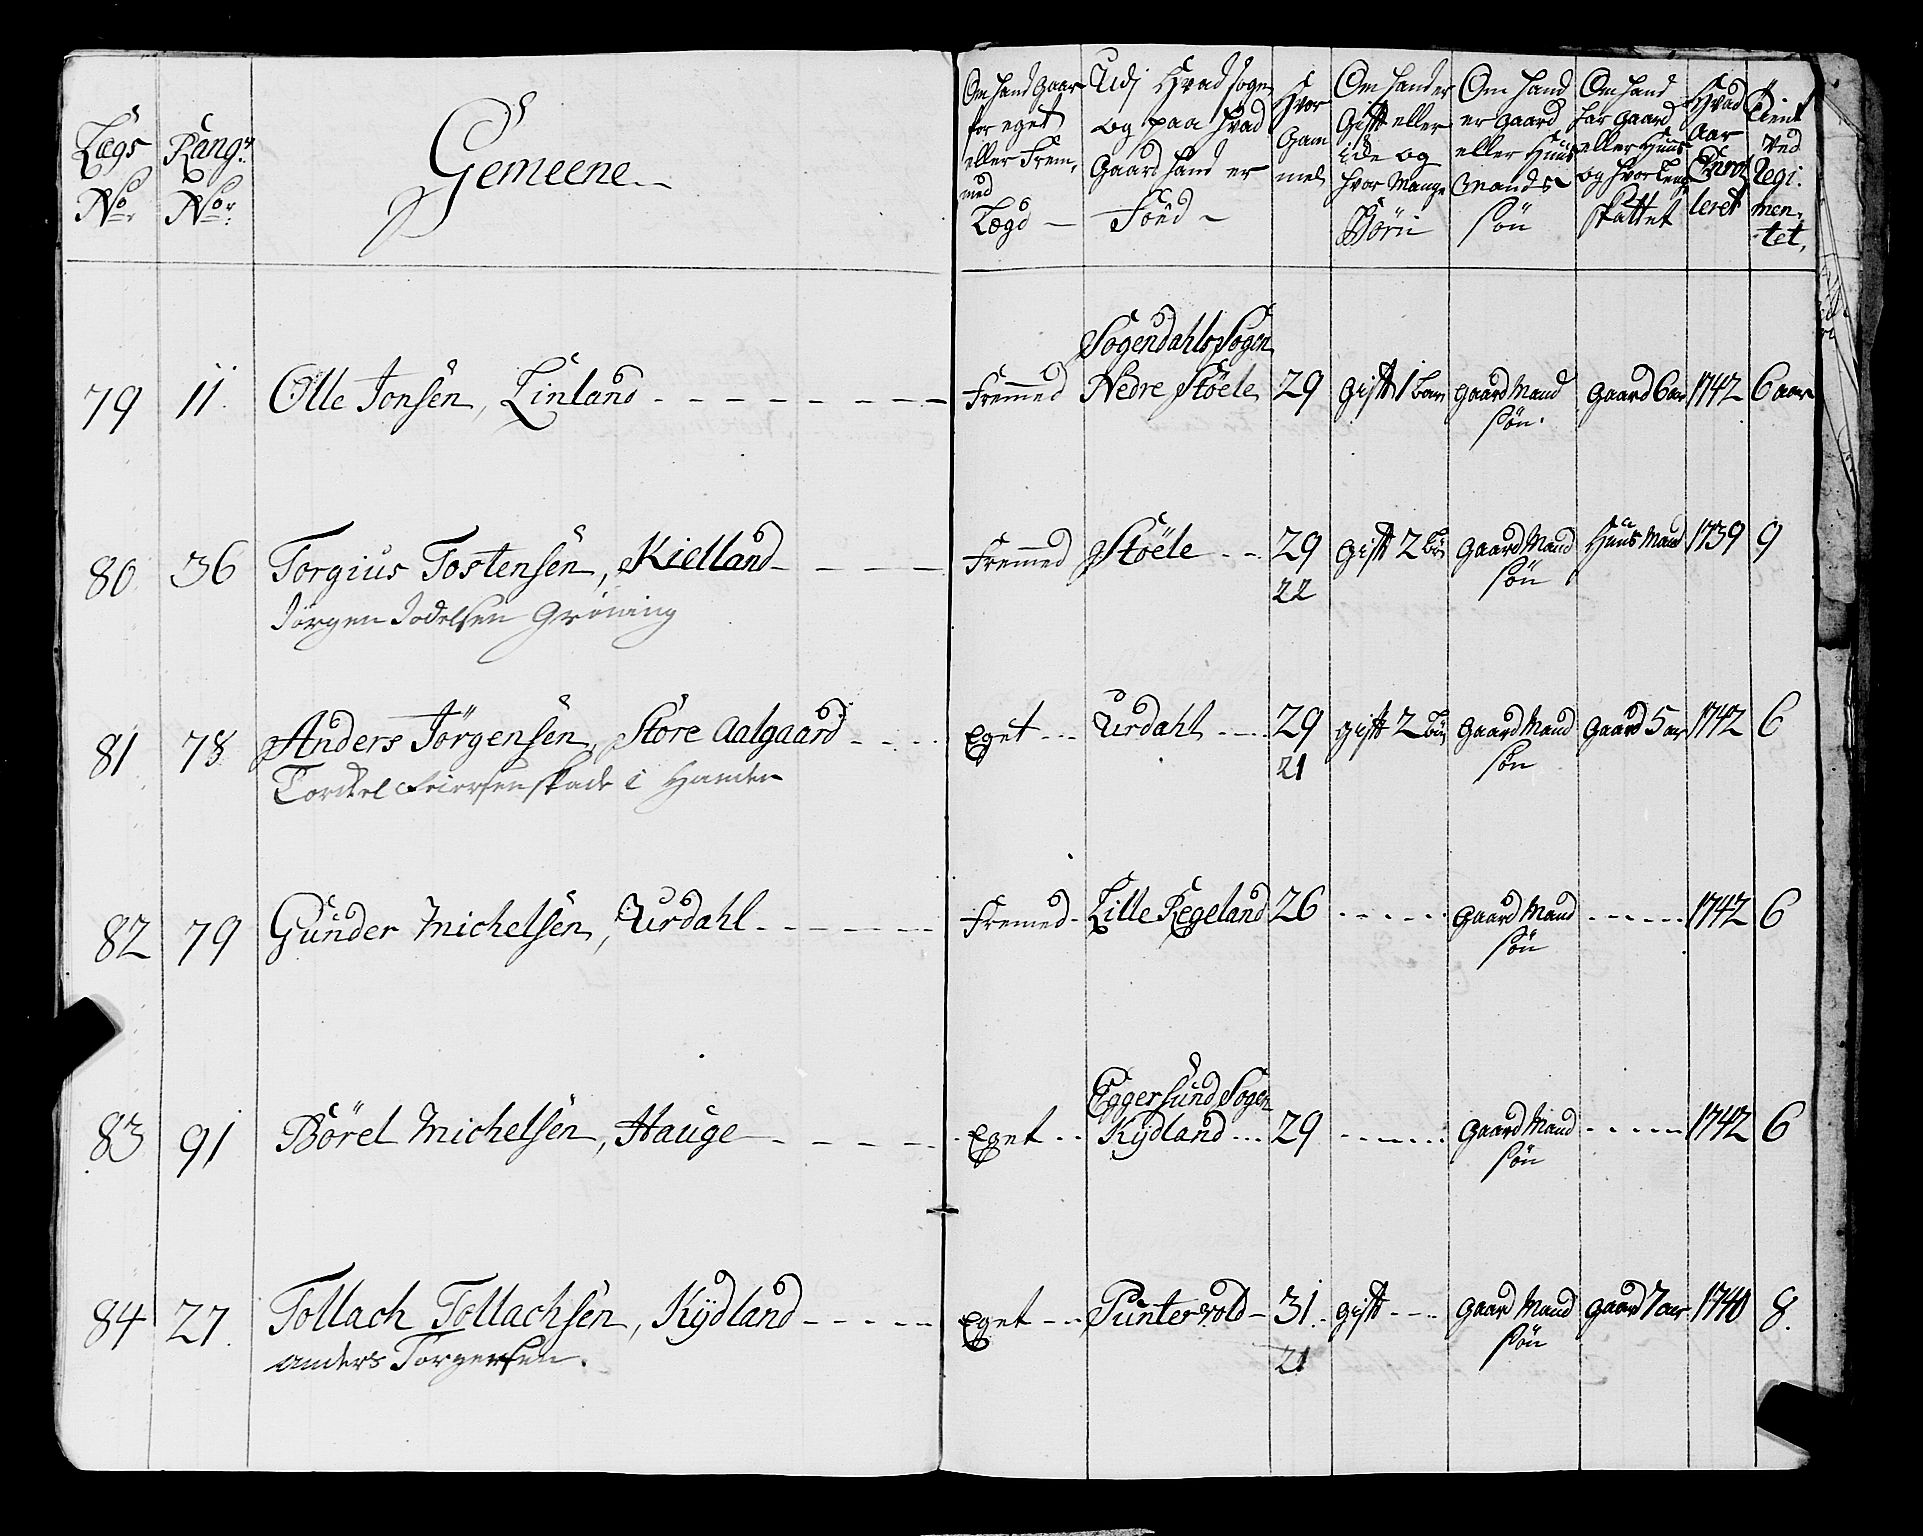 Lægs No. Rang: No. Gemeene
Om hand Gaar for eget eller Fremmed Lægd
Udj Hvad Sogn og paa hvad Gaard hand er Föed
Hvor Gammel
Om hand er Gifft eller ide og hvor Mange Börn
Om hand er gaard eller Huus Mands Sön
Om hand har gaard eller Huus og hvor Lenge skattet
Hvad Aar Enrolleret
Tient ved Regimentet,
Sogendahls Sogen
79 11 Olle Jonsen, Linland Fremmed Nedre Stöele 29 Gifft 1 barn gaard Mand Sön. Gaard 6 aar 1742 6 aar
80 36 Torgius Tostensen, Kielland Fremmed Stöele 29 gifft 2 bör gaard Mand Sön Huus Mand 1739 9
Jörgen Jodelsen Gröning 22
81 78 Anders Jörgensen, Store Aalgaard Eget Urdahl 29 gifft 2 bör gaard Mand Sön Gaard 5 aar 1742 6
skade i Handen 21
82 79 Gunder Michelsen, Urdahl Fremed Lille Regeland 26 gaard Mand Sön 1742 6
Eggersund Sogen
83 91 Börel Michelsen, Hauge Eget Kÿdland 29 gaard Mand Sön 1742 6
84 27 Tollach Tollachsen, Kÿdland Eget Puntervold 31 gifft gaard Mand Sön gaard 7 aar 1740 8.
Anders Torgersen. 21